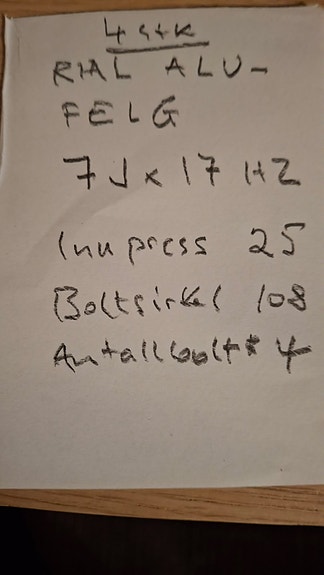 4 stk
RIAL ALU-
FELG
7J x 17 H2
Innpress 25
Boltsirkel 108
Antall bolt* 4